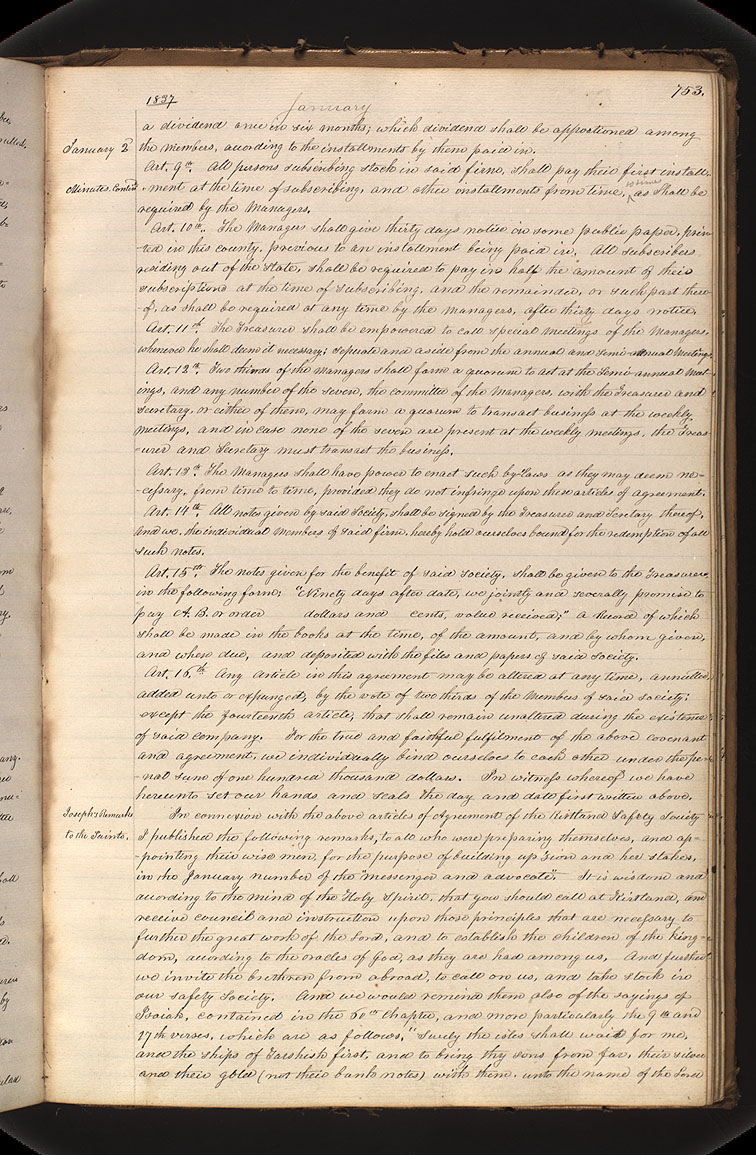 1837
January
753.
a dividend once in six months; which dividend shall be apportioned among
January 2d
the members, according to the installments by them paid in.
Art. 9th. All persons subscribing stock in said firm, shall pay their first install-
Minutes. Contd
-ment at the time of subscribing, and other installments from time to time, as shall be
required by the Managers.
Art. 10th. The Managers shall give thirty days notice in some public paper, prin-
-ted in this county, previous to an installment being paid in. All subscribers
residing out of the State, shall be required to pay in half the amount of their
subscriptions at the time of subscribing, and the remainder, or such part there-
-of, as shall be required at any time by the Managers, after thirty days notice.
Art. 11th. The Treasurer shall be empowered to call special meetings of the Managers,
whenever he shall deem it necessary; seperate and aside from the annual and semi-annual meetings.
Art. 12th. Two thirds of the Managers shall form a quorum to act at the semi-annual meet-
ings, and any number of the seven, the committee of the Managers, with the Treasurer and
Secretary, or either of them, may form a quorum to transact business at the weekly
meetings, and in case none of the seven are present at the weekly meetings, the Treas-
-urer and Secretary must transact the business.
Art. 13th. The Managers shall have power to enact such by-laws as they may deem ne-
-cessary, from time to time, provided they do not infringe upon these articles of agreement.
Art. 14th. All notes given by said Society, shall be signed by the Treasurer and Secretary thereof,
and we, the individual members of said firm, hereby hold ourselves bound for the redemption of all
such notes.
Art. 15th. The notes given for the benefit of said society, shall be given to the Treasurer,
in the following form; "Ninety days after date, we jointly and severally promise to
pay A. B. or order dollars and cents, value received;" a Record of which
shall be made in the books at the time, of the amount, and by whom given,
and when due, and deposited with the files and papers of said society.
Art. 16th Any article in this agreement may be altered at any time, annulled,
added unto or expunged, by the vote of two thirds of the members of said society;
except the fourteenth article; that shall remain unaltered during the existence
of said company. For the true and faithful fulfilment of the above covenant
and agreement, we individually bind ourselves to each other under the pe-
-nal sum of one hundred thousand dollars. In witness whereof we have
hereunto set our hands and seals the day and date first written above.
Joseph's Remarks
to the Saints.
In connexion with the above articles of Agreement of the Kirtland Safety Society
I published the following remarks, to all who were preparing themselves, and ap-
-pointing their wise men, for the purpose of building up Zion and her stakes,
in the January number of the "messenger and advocate". It is wisdom and
according to the mind of the Holy Spirit, that you should call at Kirtland, and
receive council and instruction upon those principles that are necessary to
further the great work of the Lord, and to establish the children of the King-
dom, according to the oracles of God, as they are had among us, And further
we invite the brethren from abroad, to call on us, and take stock in
our safety Society. And we would remind them also of the sayings of
Isaiah, contained in the 60th Chapter, and more particularly the 9th and
17th verses, which are as follows, "Surely the isles shall wait for me,
and the ships of Tarshish first, and to bring thy sons from far, their silver
and their gold (not their bank notes) with them, unto the name of the Lord